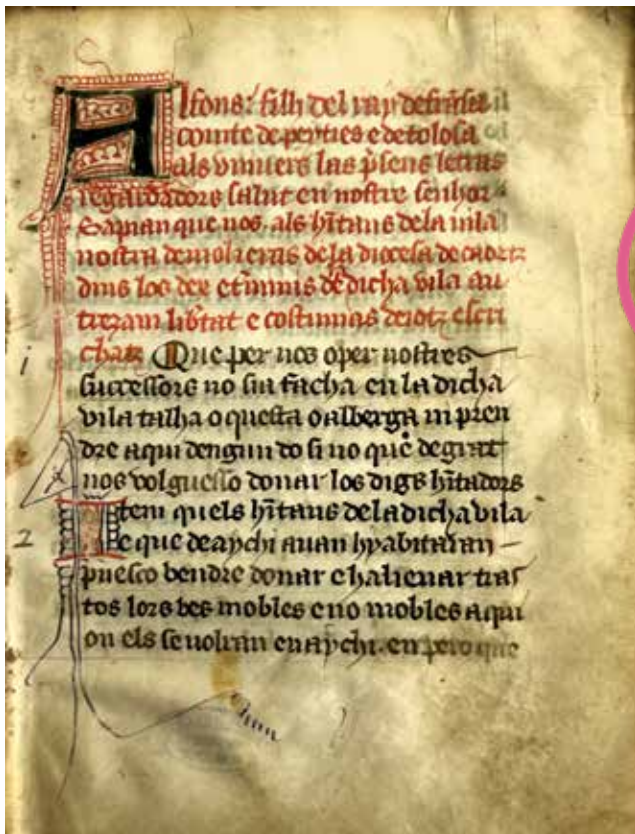 Alfons: filh del ray defransa
comte de peyties e de tolosa
als univers las p̃sens letras
regardadors salut en nostre senhor
Sapian que nos. als hĩtans dela vila
nostra de molieras de la diocesa de caortz
dins los dex e termnis de dicha vila au
treiam libtat e costumas dejotz escri
chas Que per nos o per nostres
successors no sia facha en la dicha
vila talha o questa o alberga ni pren
dre aqui dengun do si no que de grat
nos volguesso donar los digs hĩtadors
Item quels hĩtans dela dicha vila
e que deaychi auan hyabitaran
puesco bendre donar e halienar tras
tos lors bes mobles e no mobles a qui
on els se volran enaychi. en pero que
1
2